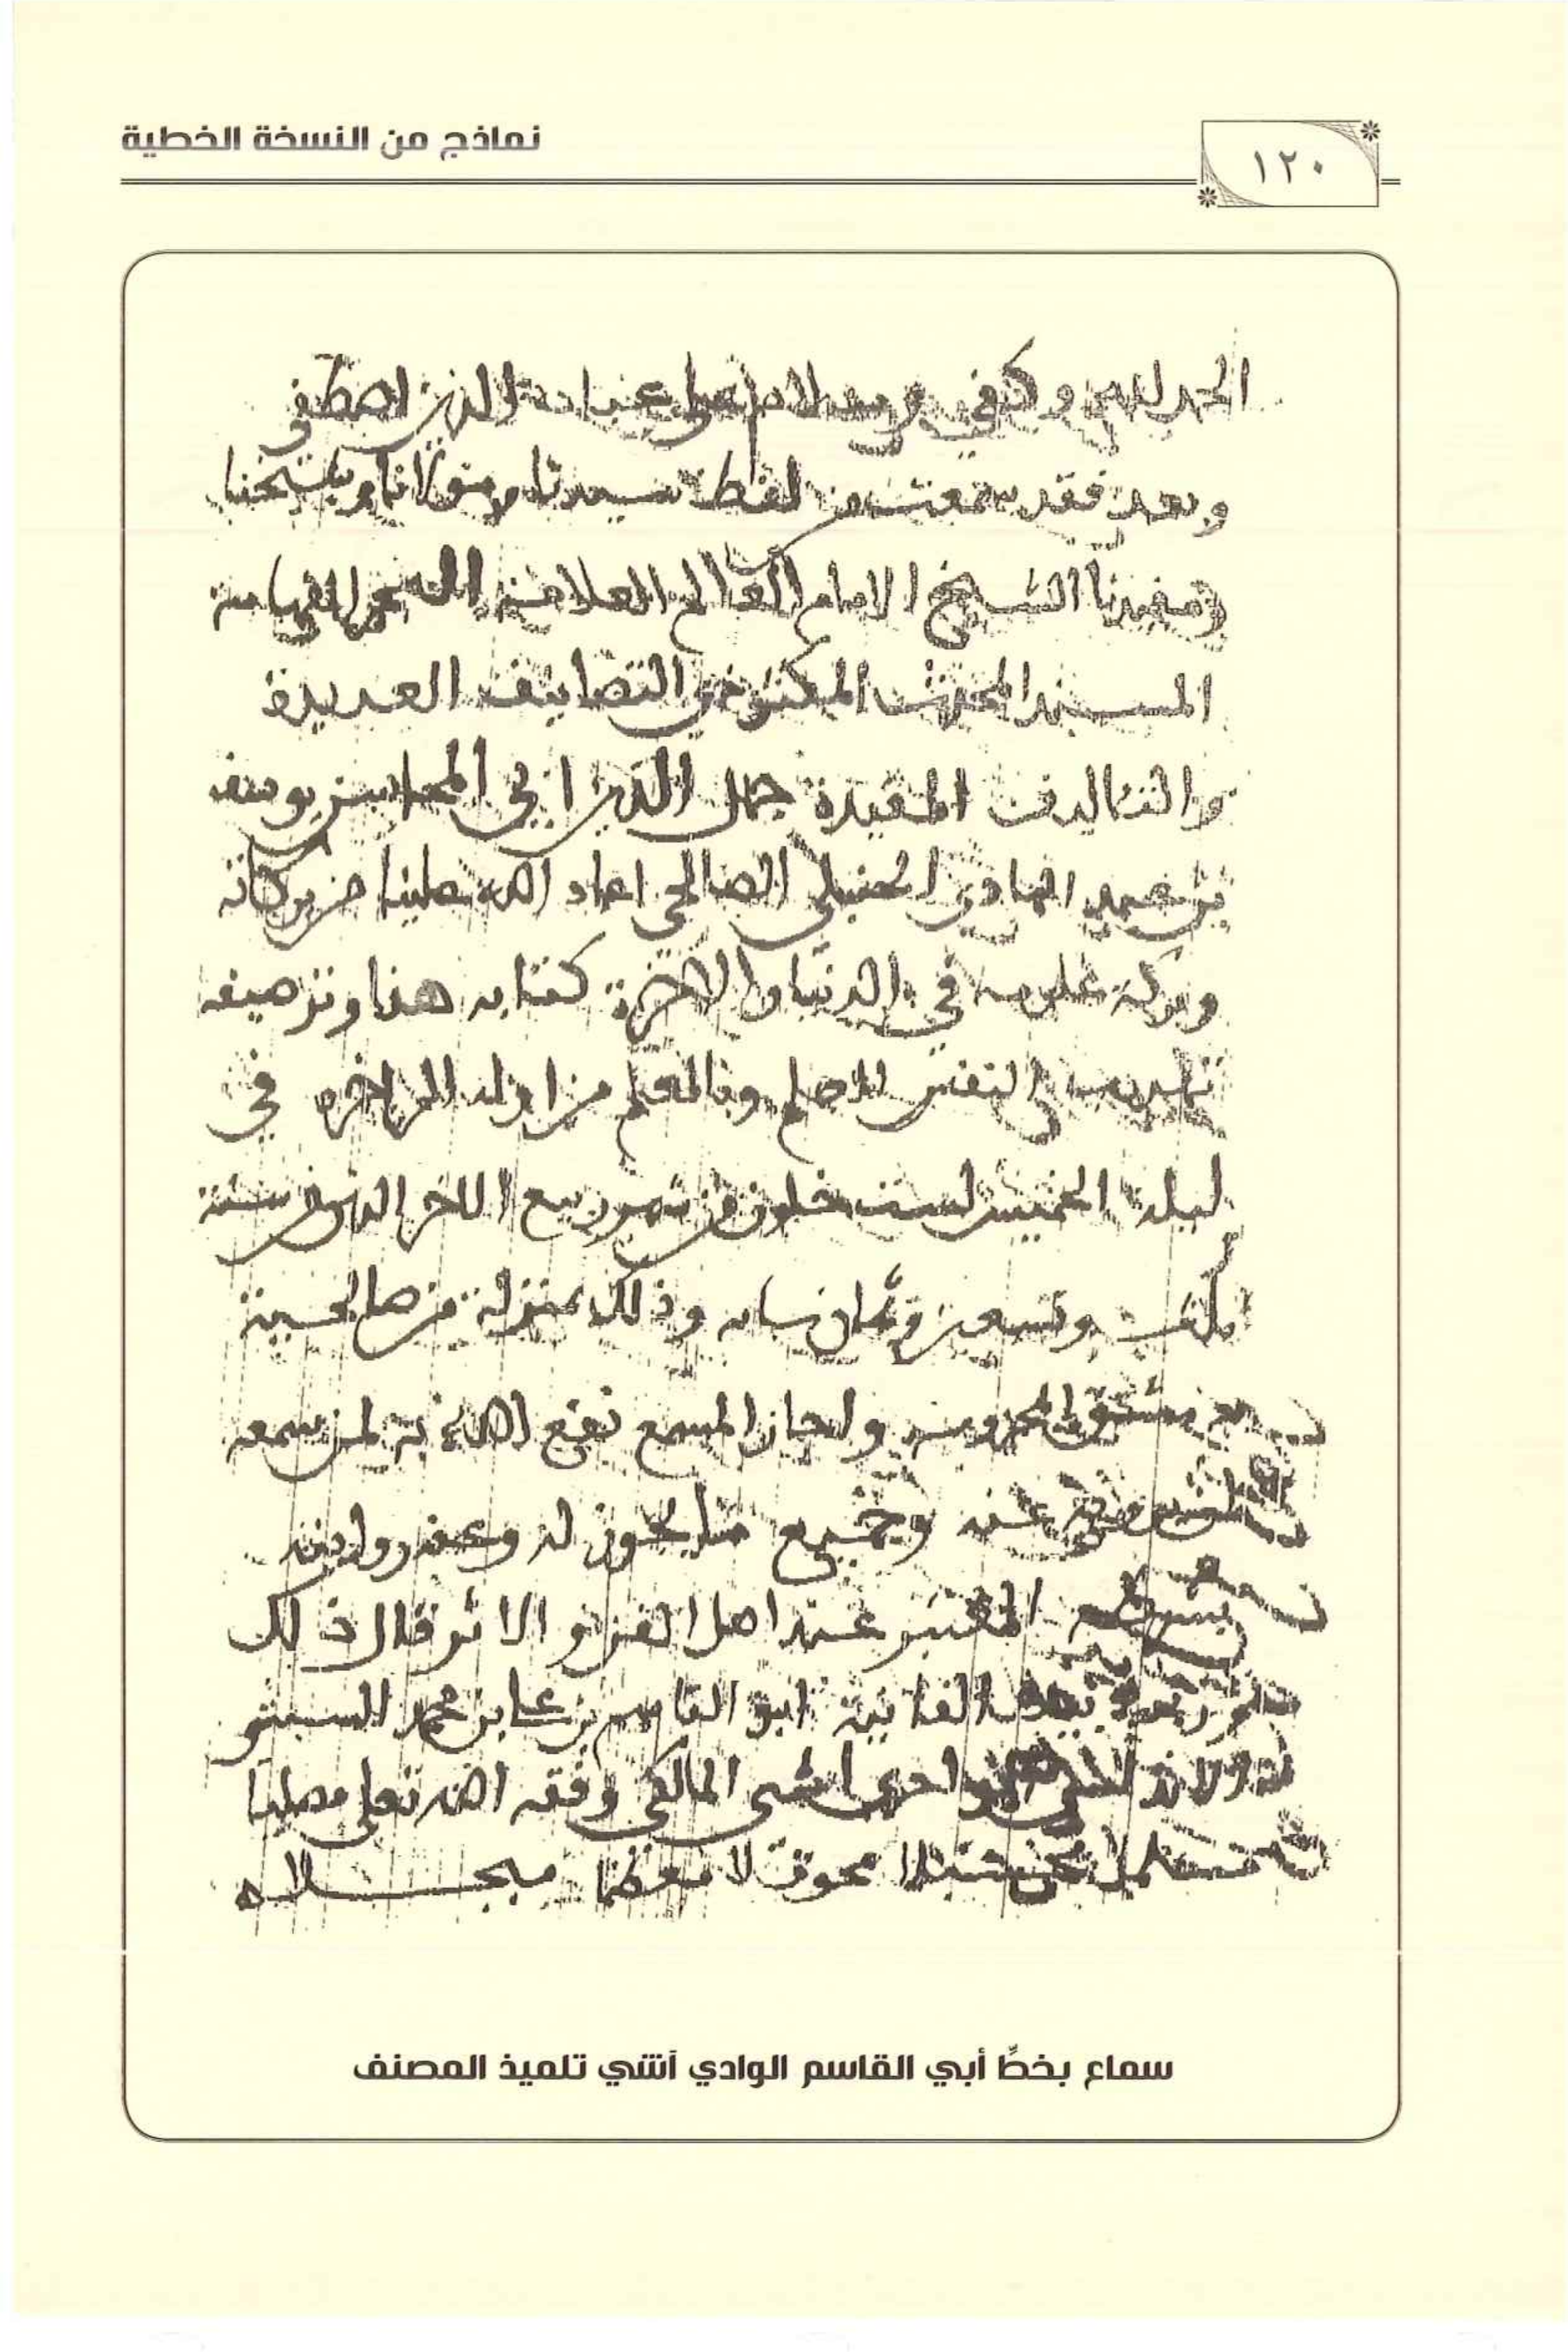 نماذج من النسخة الخطية
١٢٠
الحمد لله وكفى وسلام على عباده الذين اصطفى
وبعد فقد سمعت من لفظ سيدنا ومولانا وشيخنا
ومفيدنا الشيخ الامام العالم العلامة الفهامة
المسند المحدث المكثر ذي التصانيف العديدة
والتئاليف المفيدة جمال الدين ابي المحاسن يوسف
بن عبد الهادي الحنبلي الصالحي اعاد الله علينا من بركاته
وبركة علومه في الدنيا والاخرة كتابه هذا وترصيفه
النفس للاصلح وفالمعلم من اوله الى اخره في
ليلة الخميس لست خلون من شهر ربيع الاخر الذي من سنة
وتسعين وثمان مايه وذلك بمنزله من صالحية
دمشق المحروسة واجاز المسمع نفع الله به لمن سمعه
عنه وجميع ما يجوز له وعنه روايته
بشرطه المعتبر عند اهل الفن والاثر قال ذلك
الفانية ابو القاسم بن علي بن محمد السبتي
الوادي اشي المالكي وفقه الله تعلى مصليا
محوقلا معظما مبجلا
سماع بخطِّ أبي القاسم الوادي آشي تلميذ المصنف